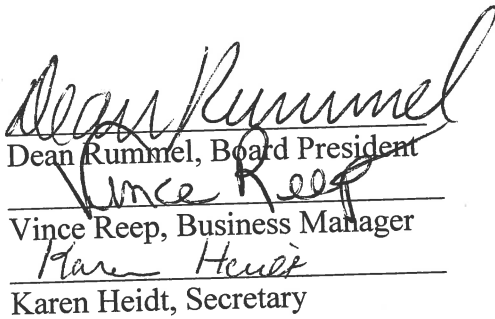 Dean Rummel
Dean Rummel, Board President
Vince Reep
Vince Reep, Business Manager
Karen Heidt
Karen Heidt, Secretary